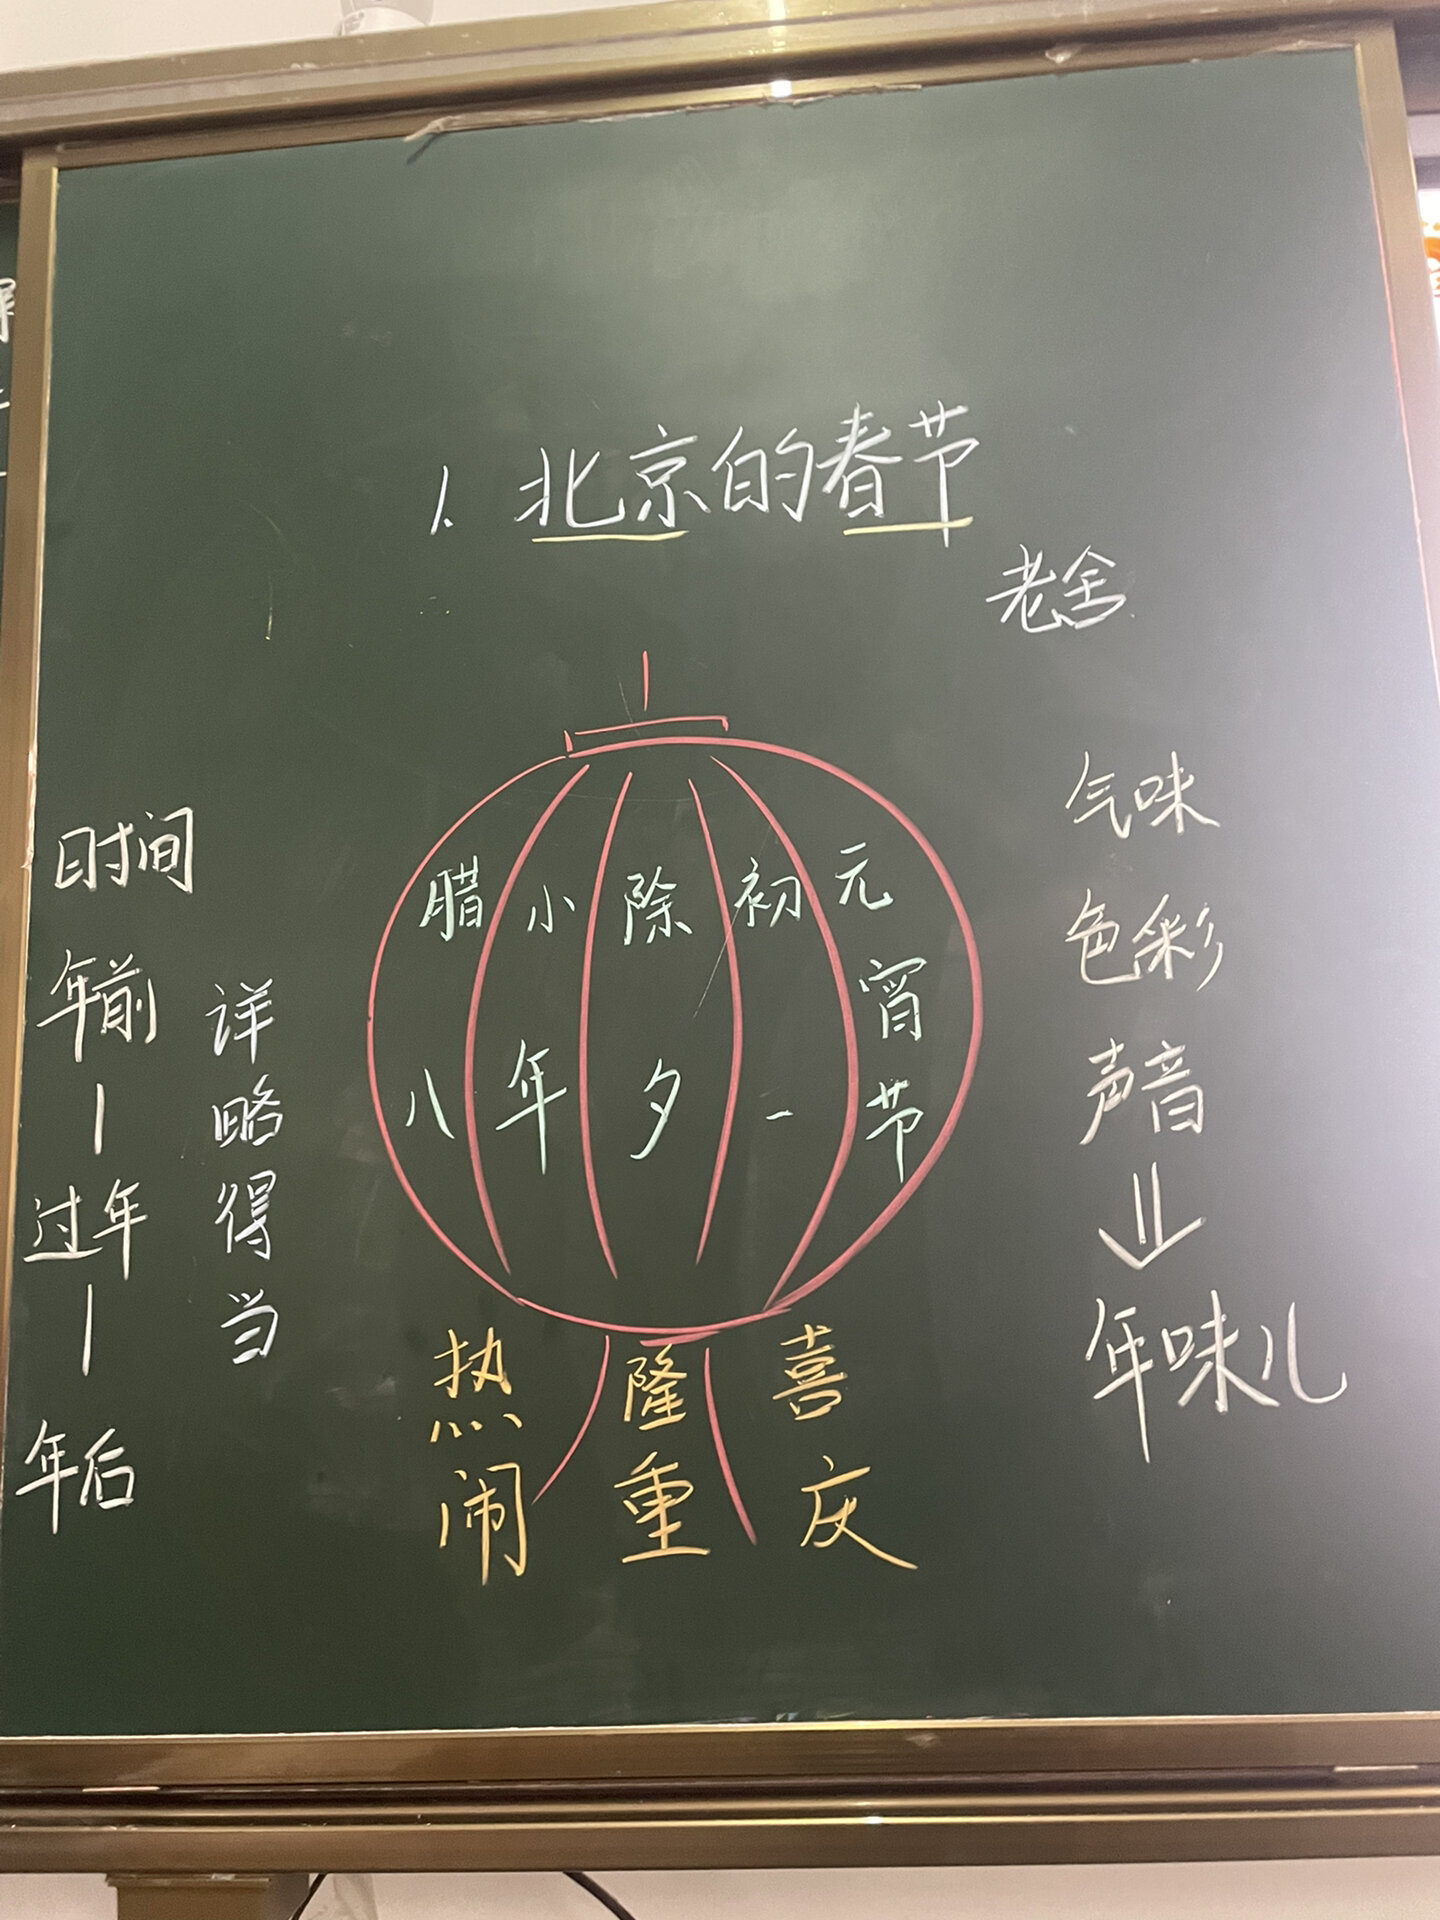 1. 北京的春节
老舍
时间
年前
过年
年后
详略得当
腊八
小年
除夕
初一
元宵节
热闹
隆重
喜庆
气味
色彩
声音
年味儿